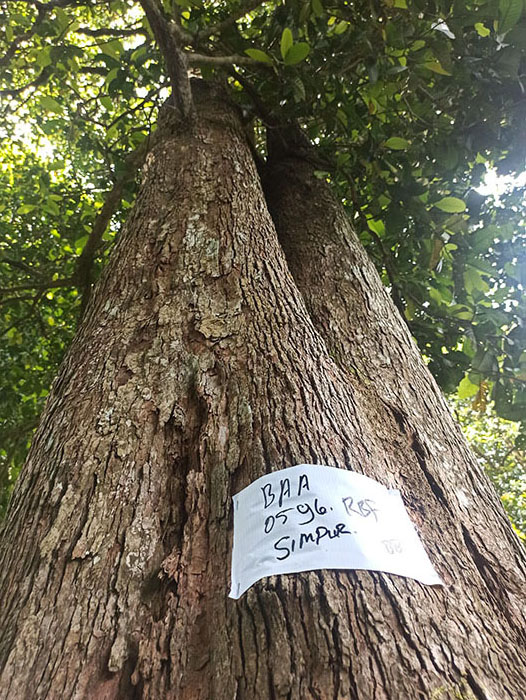 BAA
0596. RBF
SIMPUR.